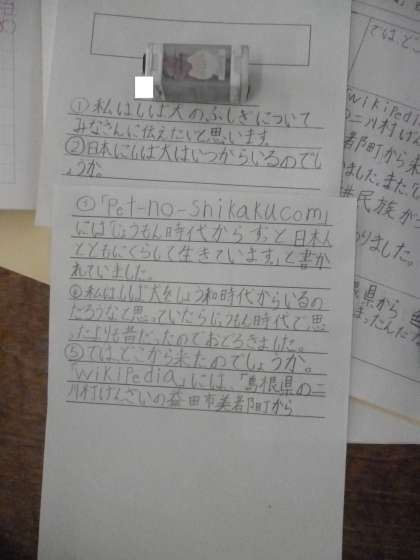 ①私はしば犬のふしぎについて
みなさんに伝えたいと思います
②日本にしば犬はいつからいるのでし
ょうか。
③「Pet-no-shikakucom」
には「じょうもん時代からずっと日本人
とともにくらして生きています。」と書か
れていました。
④私はしば犬をしょう和時代からいるの
だろうなと思っていたらじょうもん時代で思
ったよりも昔だったのでおどろきました。
⑤ではどこから来たのでしょうか。
「wikipedia」には、「島根県の二
川村げんざいの益田市美都町から
では、どこ
「wikipedia
二川村げん
都町から来
ました。また
民族がっ
りました。
県から